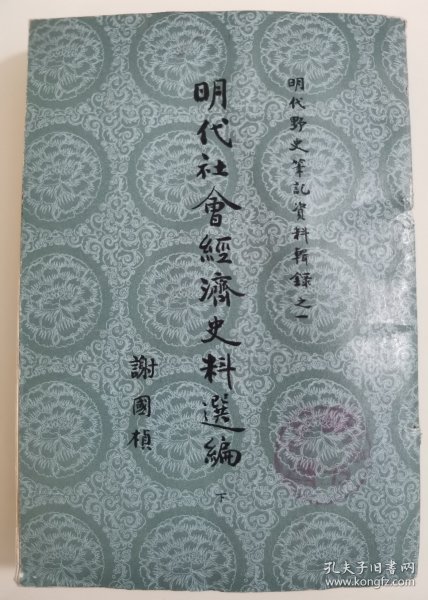 明代野史筆記資料輯錄之一
明代社會經濟史料選編
下
謝國楨
孔夫子旧书网
www.kongfz.com